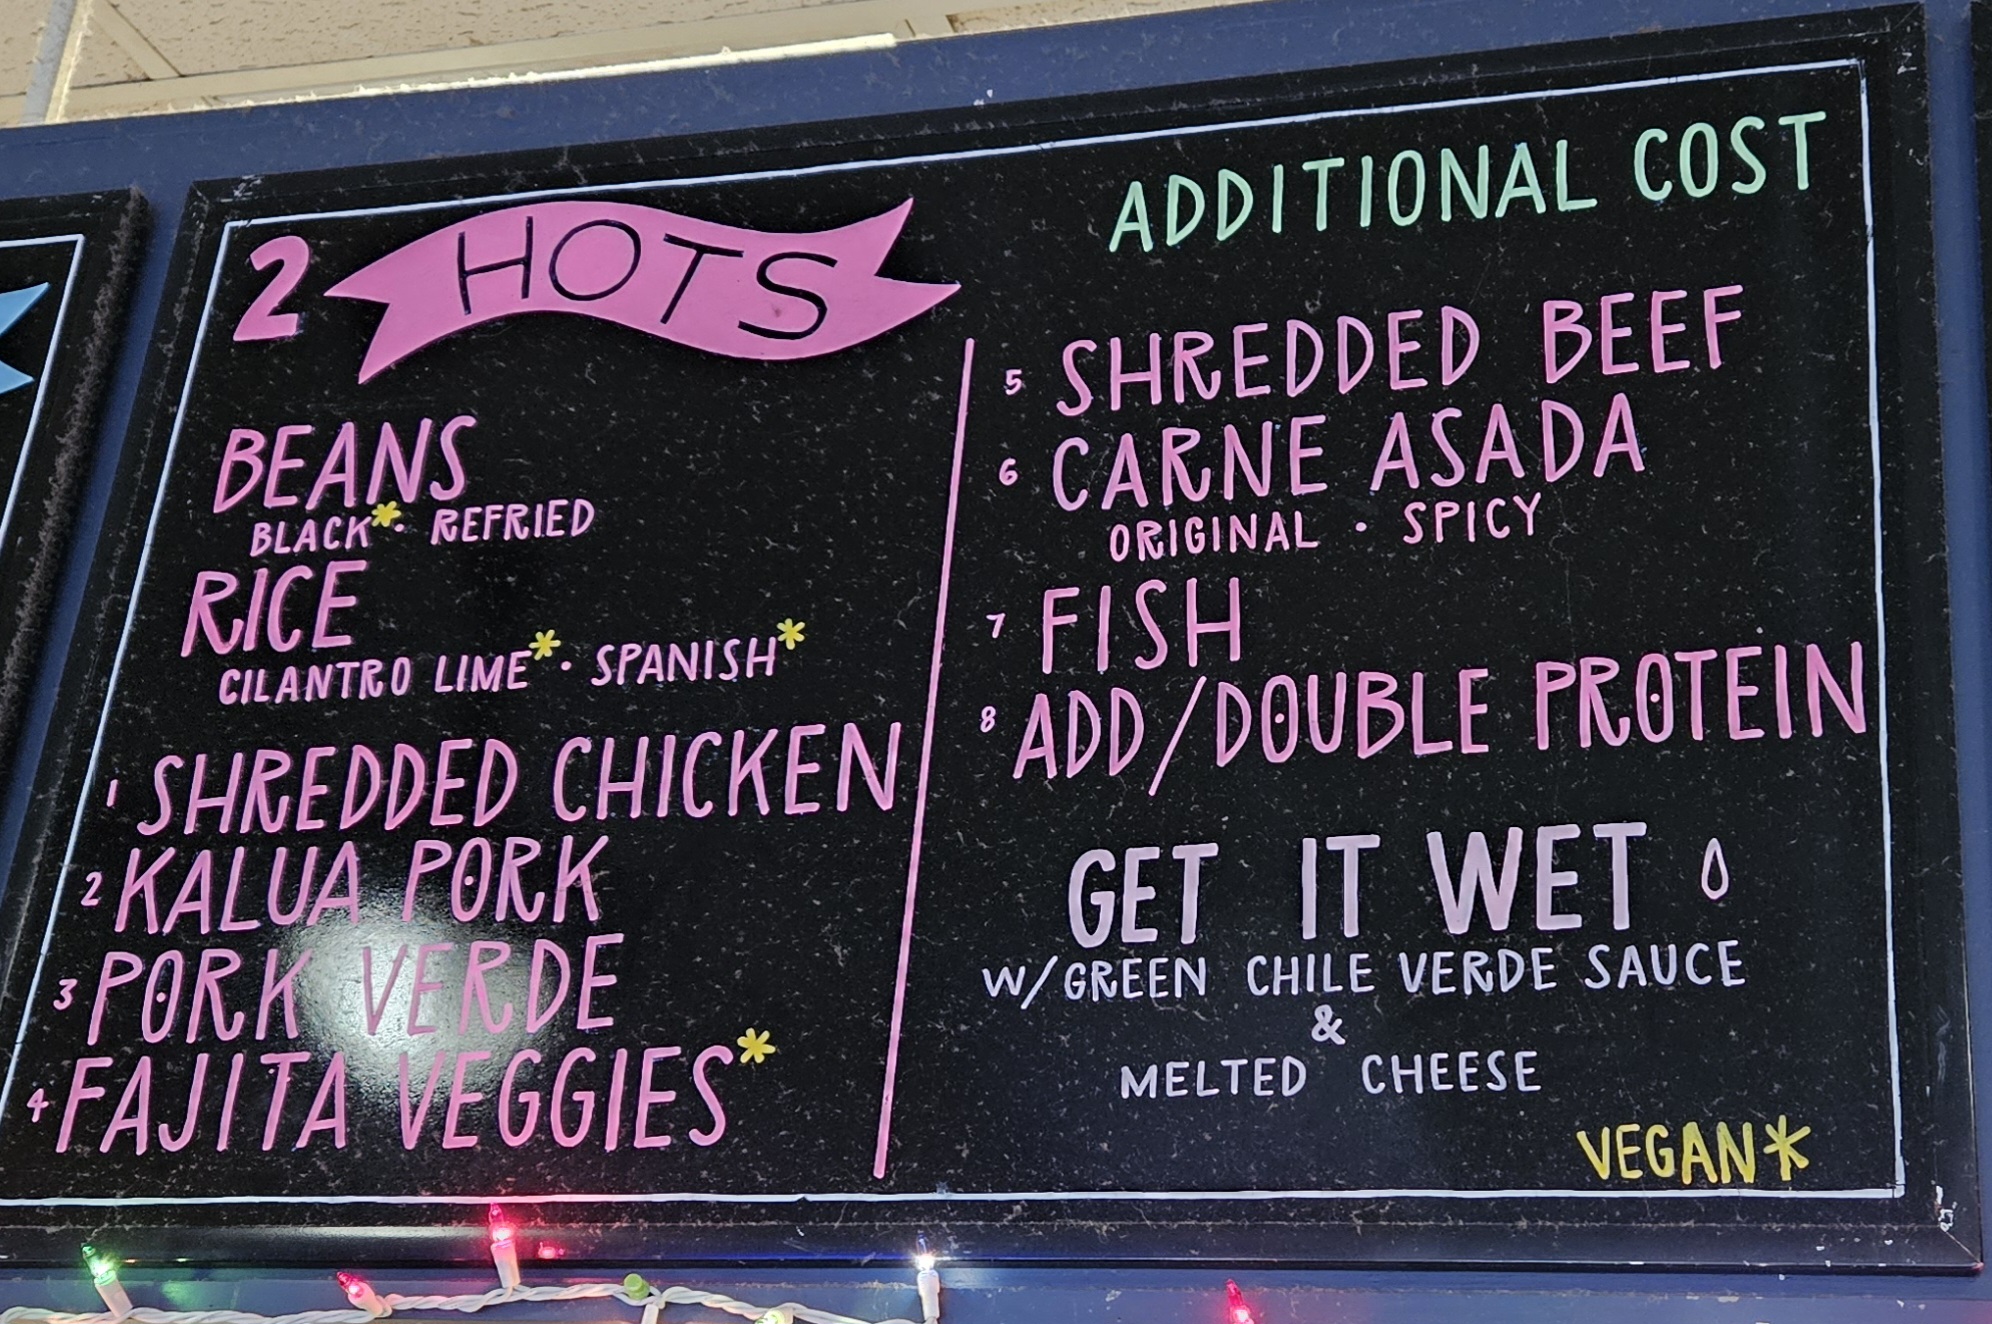 2 HOTS
BEANS
BLACK* · REFRIED
RICE
CILANTRO LIME* · SPANISH*
1 SHREDDED CHICKEN
2 KALUA PORK
3 PORK VERDE
4 FAJITA VEGGIES*
ADDITIONAL COST
5 SHREDDED BEEF
6 CARNE ASADA
ORIGINAL · SPICY
7 FISH
8 ADD/DOUBLE PROTEIN
GET IT WET
W/GREEN CHILE VERDE SAUCE
&
MELTED CHEESE
VEGAN*